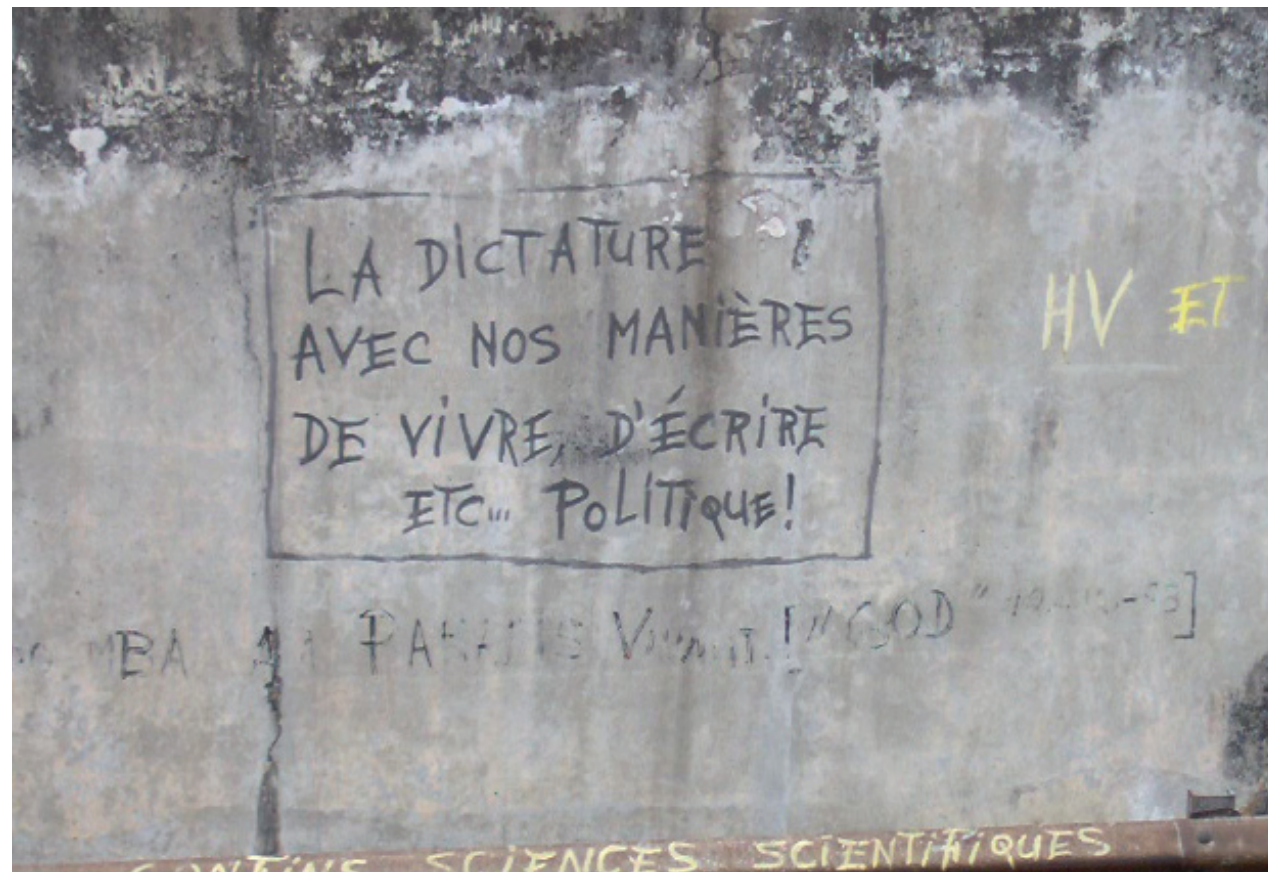 LA DICTATURE !
AVEC NOS MANIÈRES
DE VIVRE, D'ÉCRIRE
ETC... POLITIQUE!
HV ET
MBA
! "GOD"
SCIENCES SCIENTIFIQUES